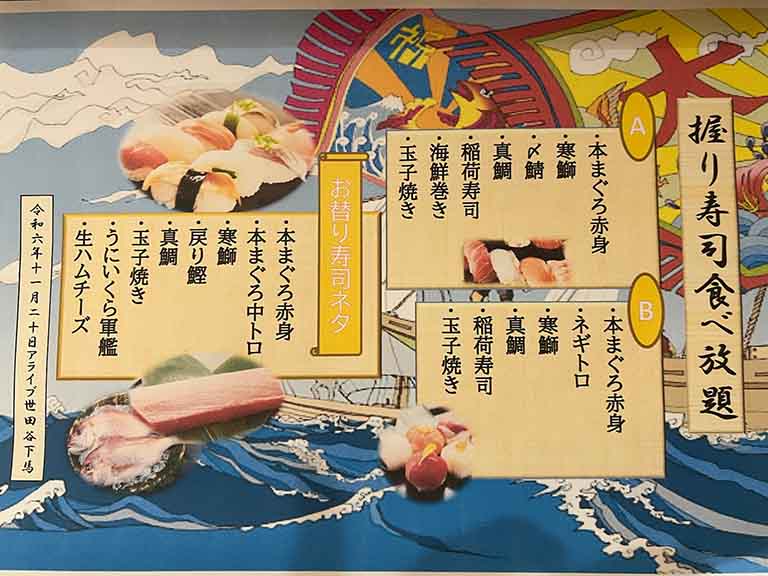 握り寿司食べ放題
A
・本まぐろ赤身
・寒鰤
・〆鯖
・真鯛
・稲荷寿司
・海鮮巻き
・玉子焼き
B
・本まぐろ赤身
・ネギトロ
・寒鰤
・真鯛
・稲荷寿司
・玉子焼き
お替り寿司ネタ
・本まぐろ赤身
・本まぐろ中トロ
・寒鰤
・戻り鰹
・真鯛
・玉子焼き
・うにいくら軍艦
・生ハムチーズ
令和六年十一月二十日アライブ世田谷下馬
大